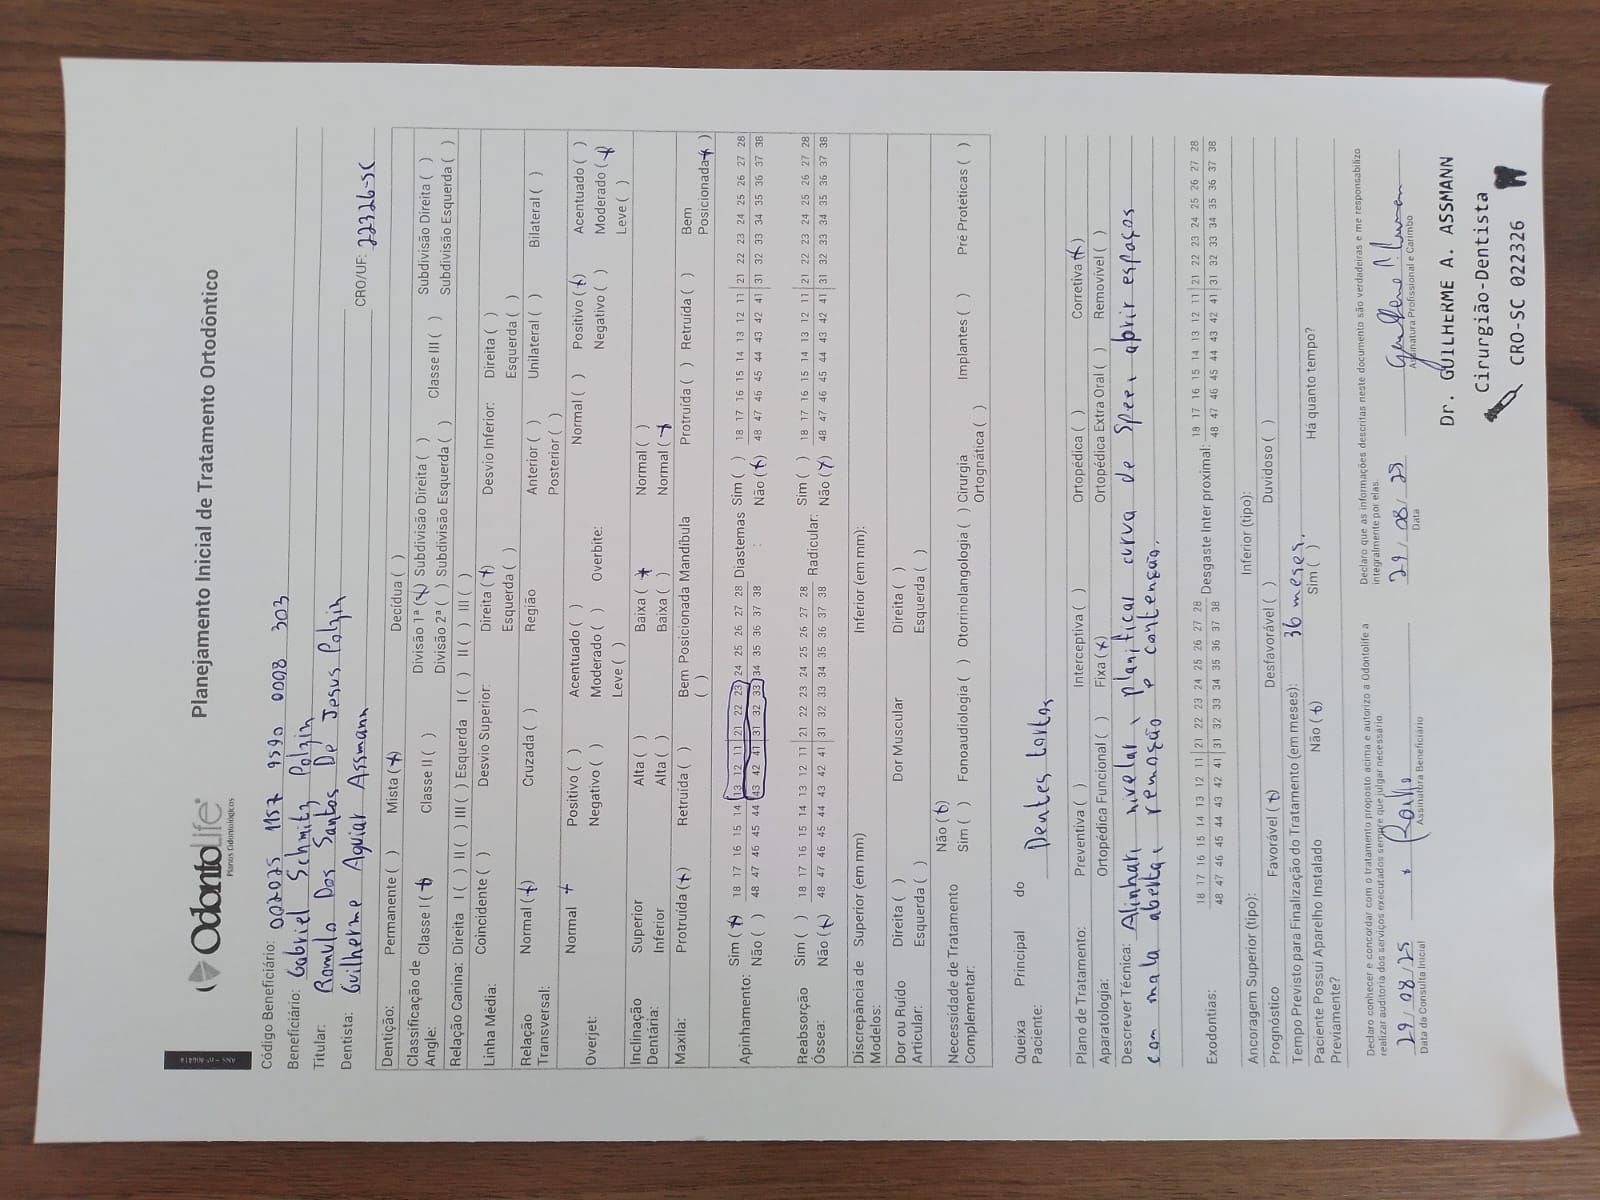 ANS - nº 406414
OdontoLife®
Planos Odontológicos
Planejamento Inicial de Tratamento Ortodôntico
Código Beneficiário: 002025 1157 9590 0008 303
Beneficiário: Gabriel Schmitz Polzin
Titular: Romulo Dos Santos De Jesus Polzin
Dentista: Guilherme Aguiar Assmann CRO/UF: 22326-SC
Dentição: Permanente ( ) Mista (x) Decídua ( )
Classificação de Angle: Classe I (x) Classe II ( ) Divisão 1ª (x) Subdivisão Direita ( ) Classe III ( ) Subdivisão Direita ( )
Divisão 2ª ( ) Subdivisão Esquerda ( ) Subdivisão Esquerda ( )
Relação Canina: Direita I ( ) II ( ) III ( ) Esquerda I ( ) II ( ) III ( )
Linha Média: Coincidente ( ) Desvio Superior: Direita (x) Desvio Inferior: Direita ( )
Esquerda ( ) Esquerda ( )
Relação Transversal: Normal (x) Cruzada ( ) Região Anterior ( ) Unilateral ( ) Bilateral ( )
Posterior ( )
Overjet: Normal x Positivo ( ) Acentuado ( ) Overbite: Normal ( ) Positivo (x) Acentuado ( )
Negativo ( ) Moderado ( ) Negativo ( ) Moderado (x)
Leve ( ) Leve ( )
Inclinação Dentária: Superior Alta ( ) Baixa ( x Normal ( )
Inferior Alta ( ) Baixa ( ) Normal ( x
Maxila: Protruída (x) Retruída ( ) Bem Posicionada ( ) Mandíbula Protruída ( ) Retruída ( ) Bem Posicionada x )
Apinhamento: Sim (x) 18 17 16 15 14 13 12 11 21 22 23 24 25 26 27 28 Diastemas: Sim ( ) 18 17 16 15 14 13 12 11 21 22 23 24 25 26 27 28
Não ( ) 48 47 46 45 44 43 42 41 31 32 33 34 35 36 37 38 Não (x) 48 47 46 45 44 43 42 41 31 32 33 34 35 36 37 38
Reabsorção Óssea: Sim ( ) 18 17 16 15 14 13 12 11 21 22 23 24 25 26 27 28 Radicular: Sim ( ) 18 17 16 15 14 13 12 11 21 22 23 24 25 26 27 28
Não (x) 48 47 46 45 44 43 42 41 31 32 33 34 35 36 37 38 Não (x) 48 47 46 45 44 43 42 41 31 32 33 34 35 36 37 38
Discrepância de Modelos: Superior (em mm) Inferior (em mm):
Dor ou Ruído Articular: Direita ( ) Dor Muscular Direita ( )
Esquerda ( ) Esquerda ( )
Necessidade de Tratamento Complementar: Não (x)
Sim ( ) Fonoaudiologia ( ) Otorrinolangologia ( ) Cirurgia Ortognática ( ) Implantes ( ) Pré Protéticas ( )
Queixa Principal do Paciente: Dentes tortos
Plano de Tratamento: Preventiva ( ) Interceptiva ( ) Ortopédica ( ) Corretiva (x)
Aparatologia: Ortopédica Funcional ( ) Fixa (x) Ortopédica Extra Oral ( ) Removível ( )
Descrever Técnica: Alinhar, nivelar, planificar curva de Speer, abrir espaços
com mola aberta, remoção e contenção.
Exodontias: 18 17 16 15 14 13 12 11 21 22 23 24 25 26 27 28 Desgaste Inter proximal: 18 17 16 15 14 13 12 11 21 22 23 24 25 26 27 28
48 47 46 45 44 43 42 41 31 32 33 34 35 36 37 38 48 47 46 45 44 43 42 41 31 32 33 34 35 36 37 38
Ancoragem Superior (tipo): Inferior (tipo):
Prognóstico Favorável (x) Desfavorável ( ) Duvidoso ( )
Tempo Previsto para Finalização do Tratamento (em meses): 36 meses.
Paciente Possui Aparelho Instalado Previamente? Não (x) Sim ( ) Há quanto tempo?
Declaro conhecer e concordar com o tratamento proposto acima e autorizo a Odontolife a
realizar auditoria dos serviços executados sempre que julgar necessário.
29/08/25
Data da Consulta Inicial
x
Assinatura Beneficiário
Declaro que as informações descritas neste documento são verdadeiras e me responsabilizo
integralmente por elas.
29/08/25
Data
Assinatura Profissional e Carimbo
Dr. GUILHERME A. ASSMANN
Cirurgião-Dentista
CRO-SC 022326